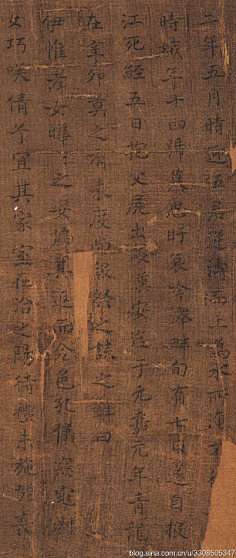 二年五月時迎伍君逆濤而上為水所淹不
時娥年十四號慕思盱哀吟澤畔旬有七日遂自投
江死經五日抱父屍出以漢安迄于元嘉元年青龍
在辛卯莫之有表度尚設祭之誄之辭曰
伊惟孝女曄曄之姿偏其返而令色孔儀窈窕淑
女巧笑倩兮宜其家室在洽之陽待禮未施嗟喪
blog.sina.com.cn/u/3308505347